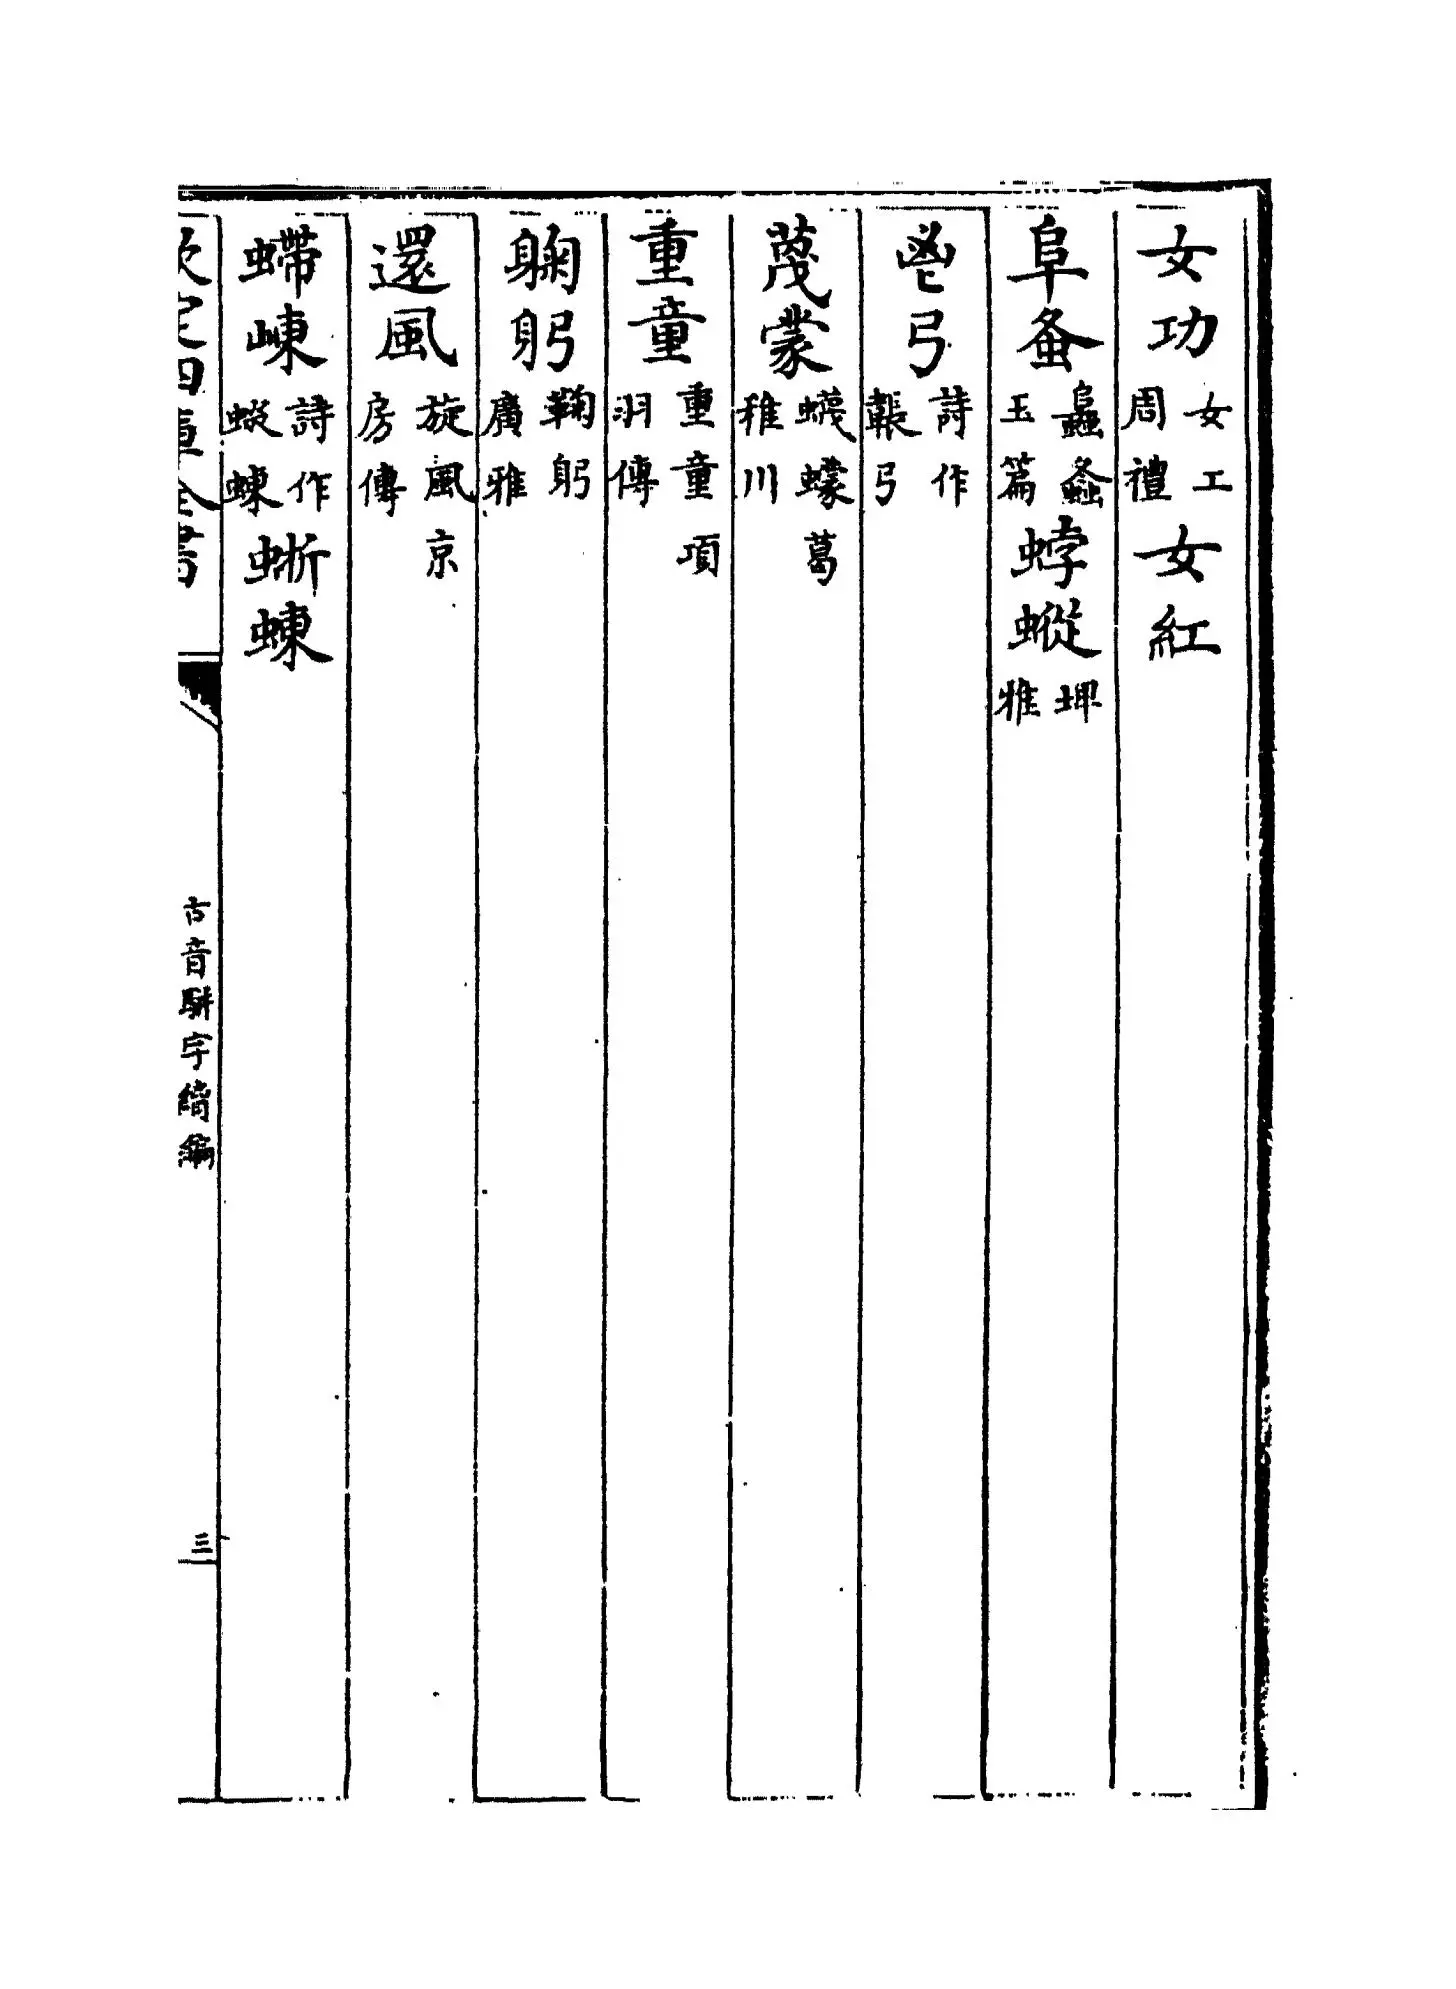 女功女工周禮女紅
阜螽𧒂螽玉篇蜉蟌埤雅
鬯弓詩作韔弓
蔑蒙蠛蠓葛稚川
重童重童項羽傳
鞠躬鞠躬廣雅
還風旋風京房傳
螮崠詩作蝃蝀蜥蝀
欽定四庫全書
古音駢字續編
三